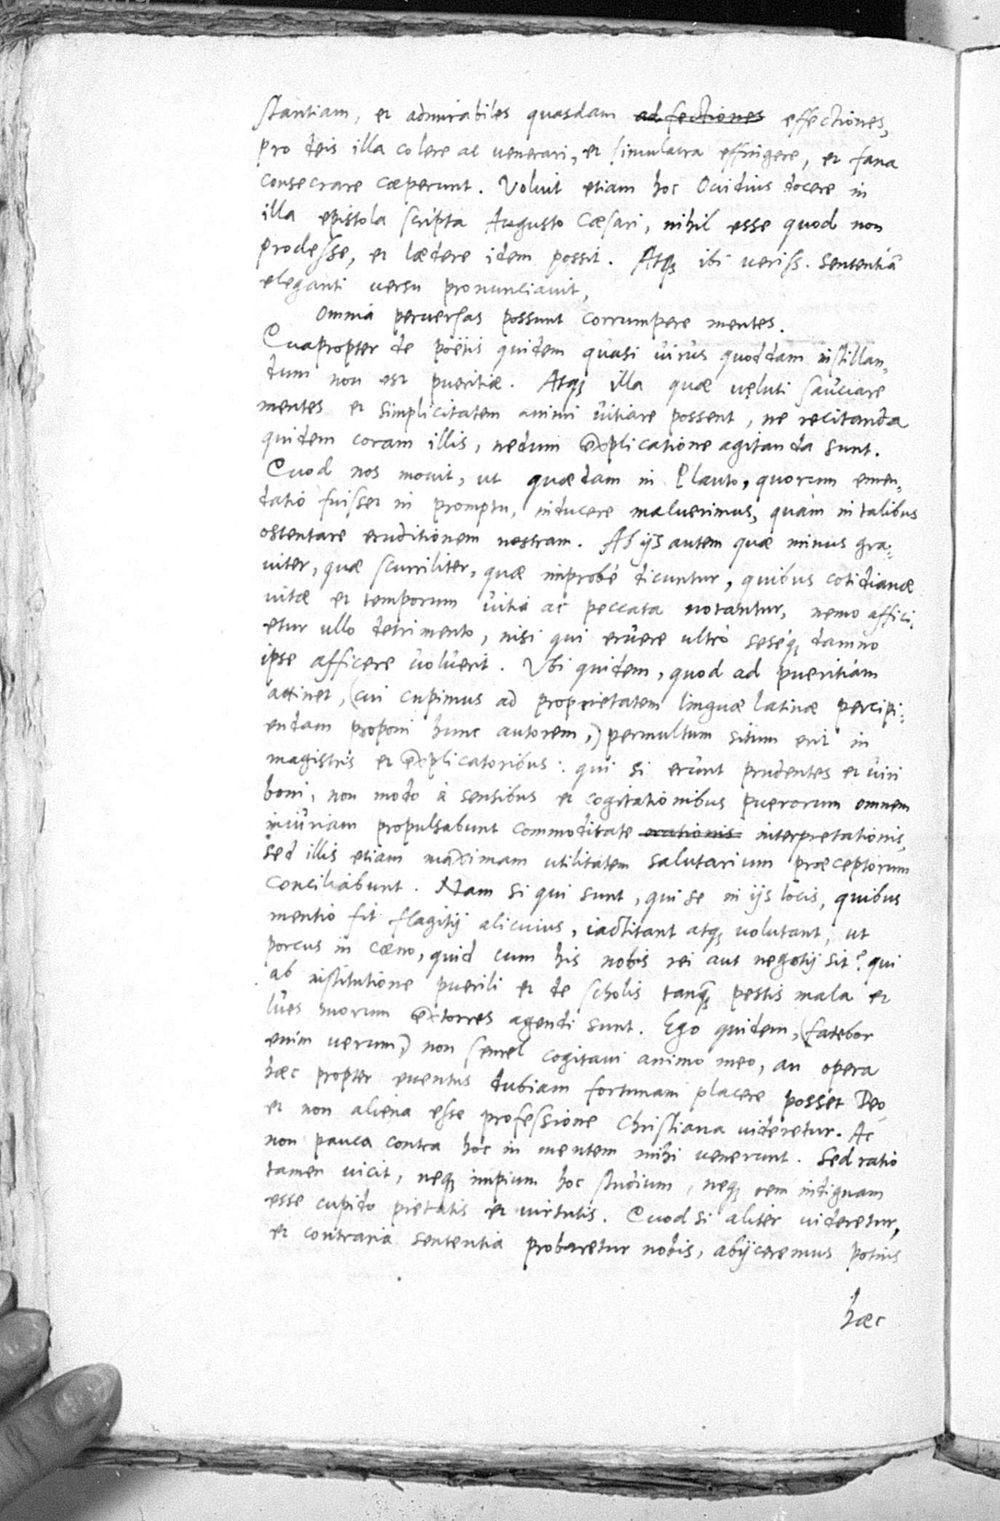 stantiam, et admirabiles quasdam adfectiones effectiones,
pro deis illa colere ac venerari, et simulacra effingere, et fana
consecrare cæperunt. Voluit etiam hoc Ovidius docere in
illa epistola scripta Augusto Cæsari, nihil esse quod non
prodesse, et lædere idem possit. Atq; ibi veriss. sententiā
eleganti versu pronunciavit,
Omnia perversas possunt corrumpere mentes.
Quapropter de poëtis quidem quasi virus quoddam instillan,
dum non est pueritiæ. Atq; illa quæ veluti sauciare
mentes et simplicitatem animi vitiare possent, ne recitanda
quidem coram illis, nedum explicatione agitanda sunt.
Quod nos movit, ut quædam in Plauto, quorum emen,
datio fuisset in promptu, inducere maluerimus, quàm in talibus
ostentare eruditionem nostram. Ab ijs autem quæ minus gra,
viter, quæ scurriliter, quæ improbè dicuntur, quibus cotidianæ
vitæ et temporum vitia ac peccata notantur, nemo affici,
etur ullo detrimento, nisi qui eruere ultrò seseq; damno
ipse afficere voluerit. Ubi quidem, quod ad pueritiam
attinet, (cui cupimus ad proprietatem linguæ latinæ percipi,
endam proponi hunc autorem,) permultum situm erit in
magistris et explicatoribus: qui si erunt prudentes et viri
boni, non modo à sensibus et cogitationibus puerorum omnem
iniuriam propulsabunt commoditate orationis interpretationis,
sed illis etiam maximam utilitatem salutarium præceptorum
conciliabunt. Nam si qui sunt, qui se in ijs locis, quibus
mentio fit flagitij alicuius, iactitant atq; volutant, ut
porcus in cæno, quid cum his nobis rei aut negotij sit? qui
ab institutione puerili et de scholis tanq; pestis mala et
lues morum extorres agendi sunt. Ego quidem, (fatebor
enim verum,) non semel cogitavi animo meo, an opera
hæc propter eventus dubiam fortunam placere posset Deo
et non aliena esse professione Christiana videretur. Ac
non pauca contra hoc in mentem mihi venerunt. Sed ratio
tamen vicit, neq; impium hoc studium, neq; rem indignam
esse cupido pietatis et virtutis. Quod si aliter videretur,
et contraria sententia probaretur nobis, abijceremus potius
hæc